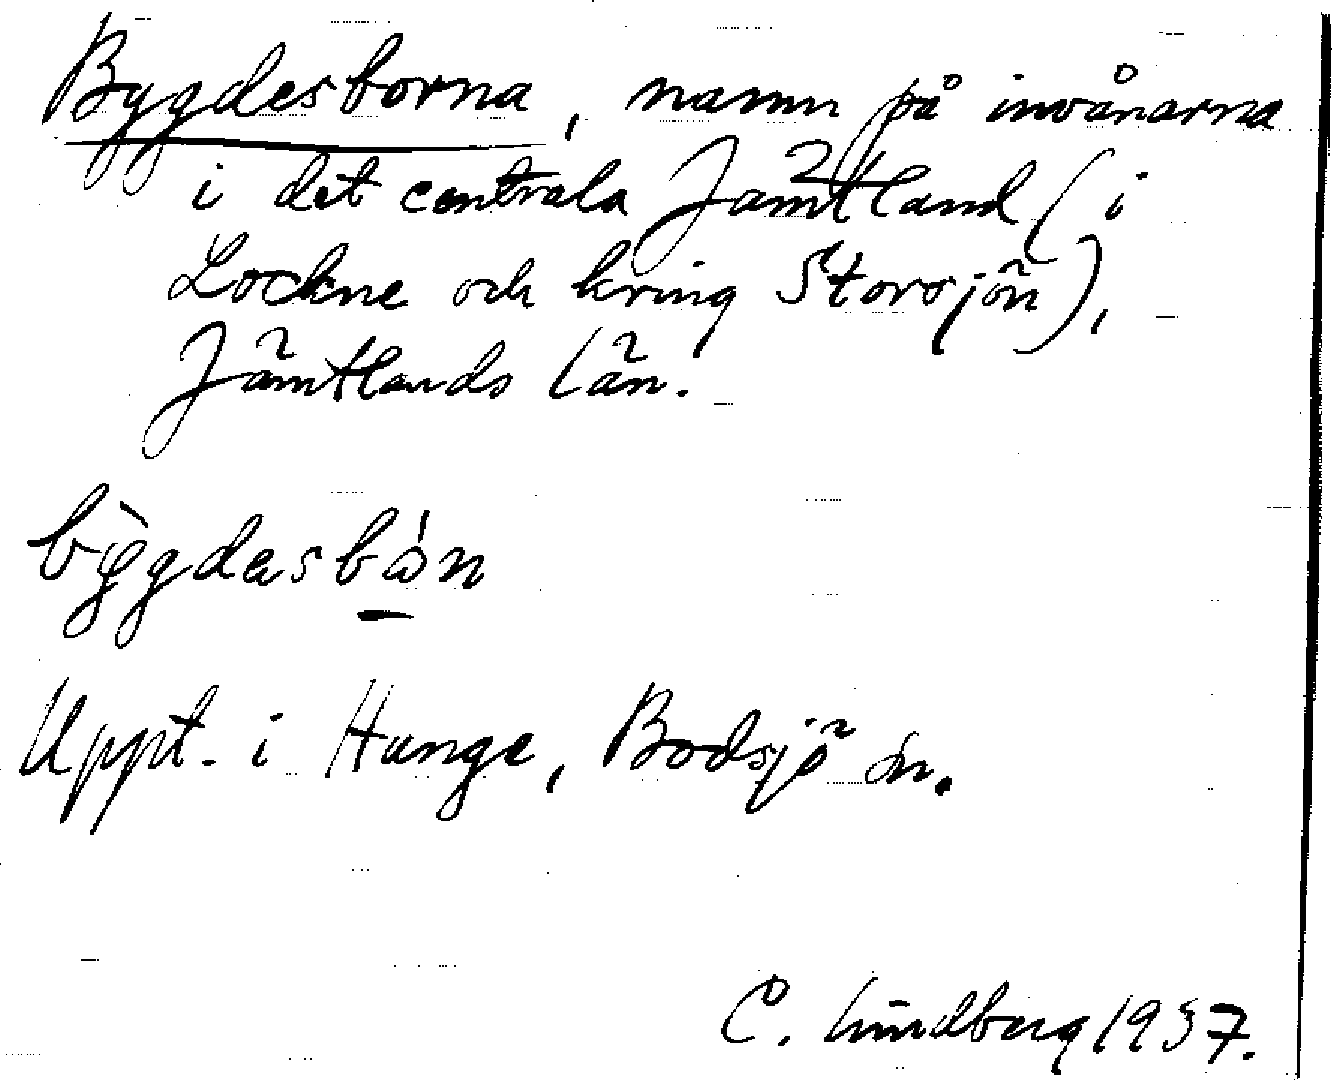 Bygdesborna, namn på invånarna
i det centrala Jämtland (i
Lockne och kring Storsjön),
Jämtlands län.
Uppt. i Hunge, Bodsjö sn.
C. Lindberg 1937.